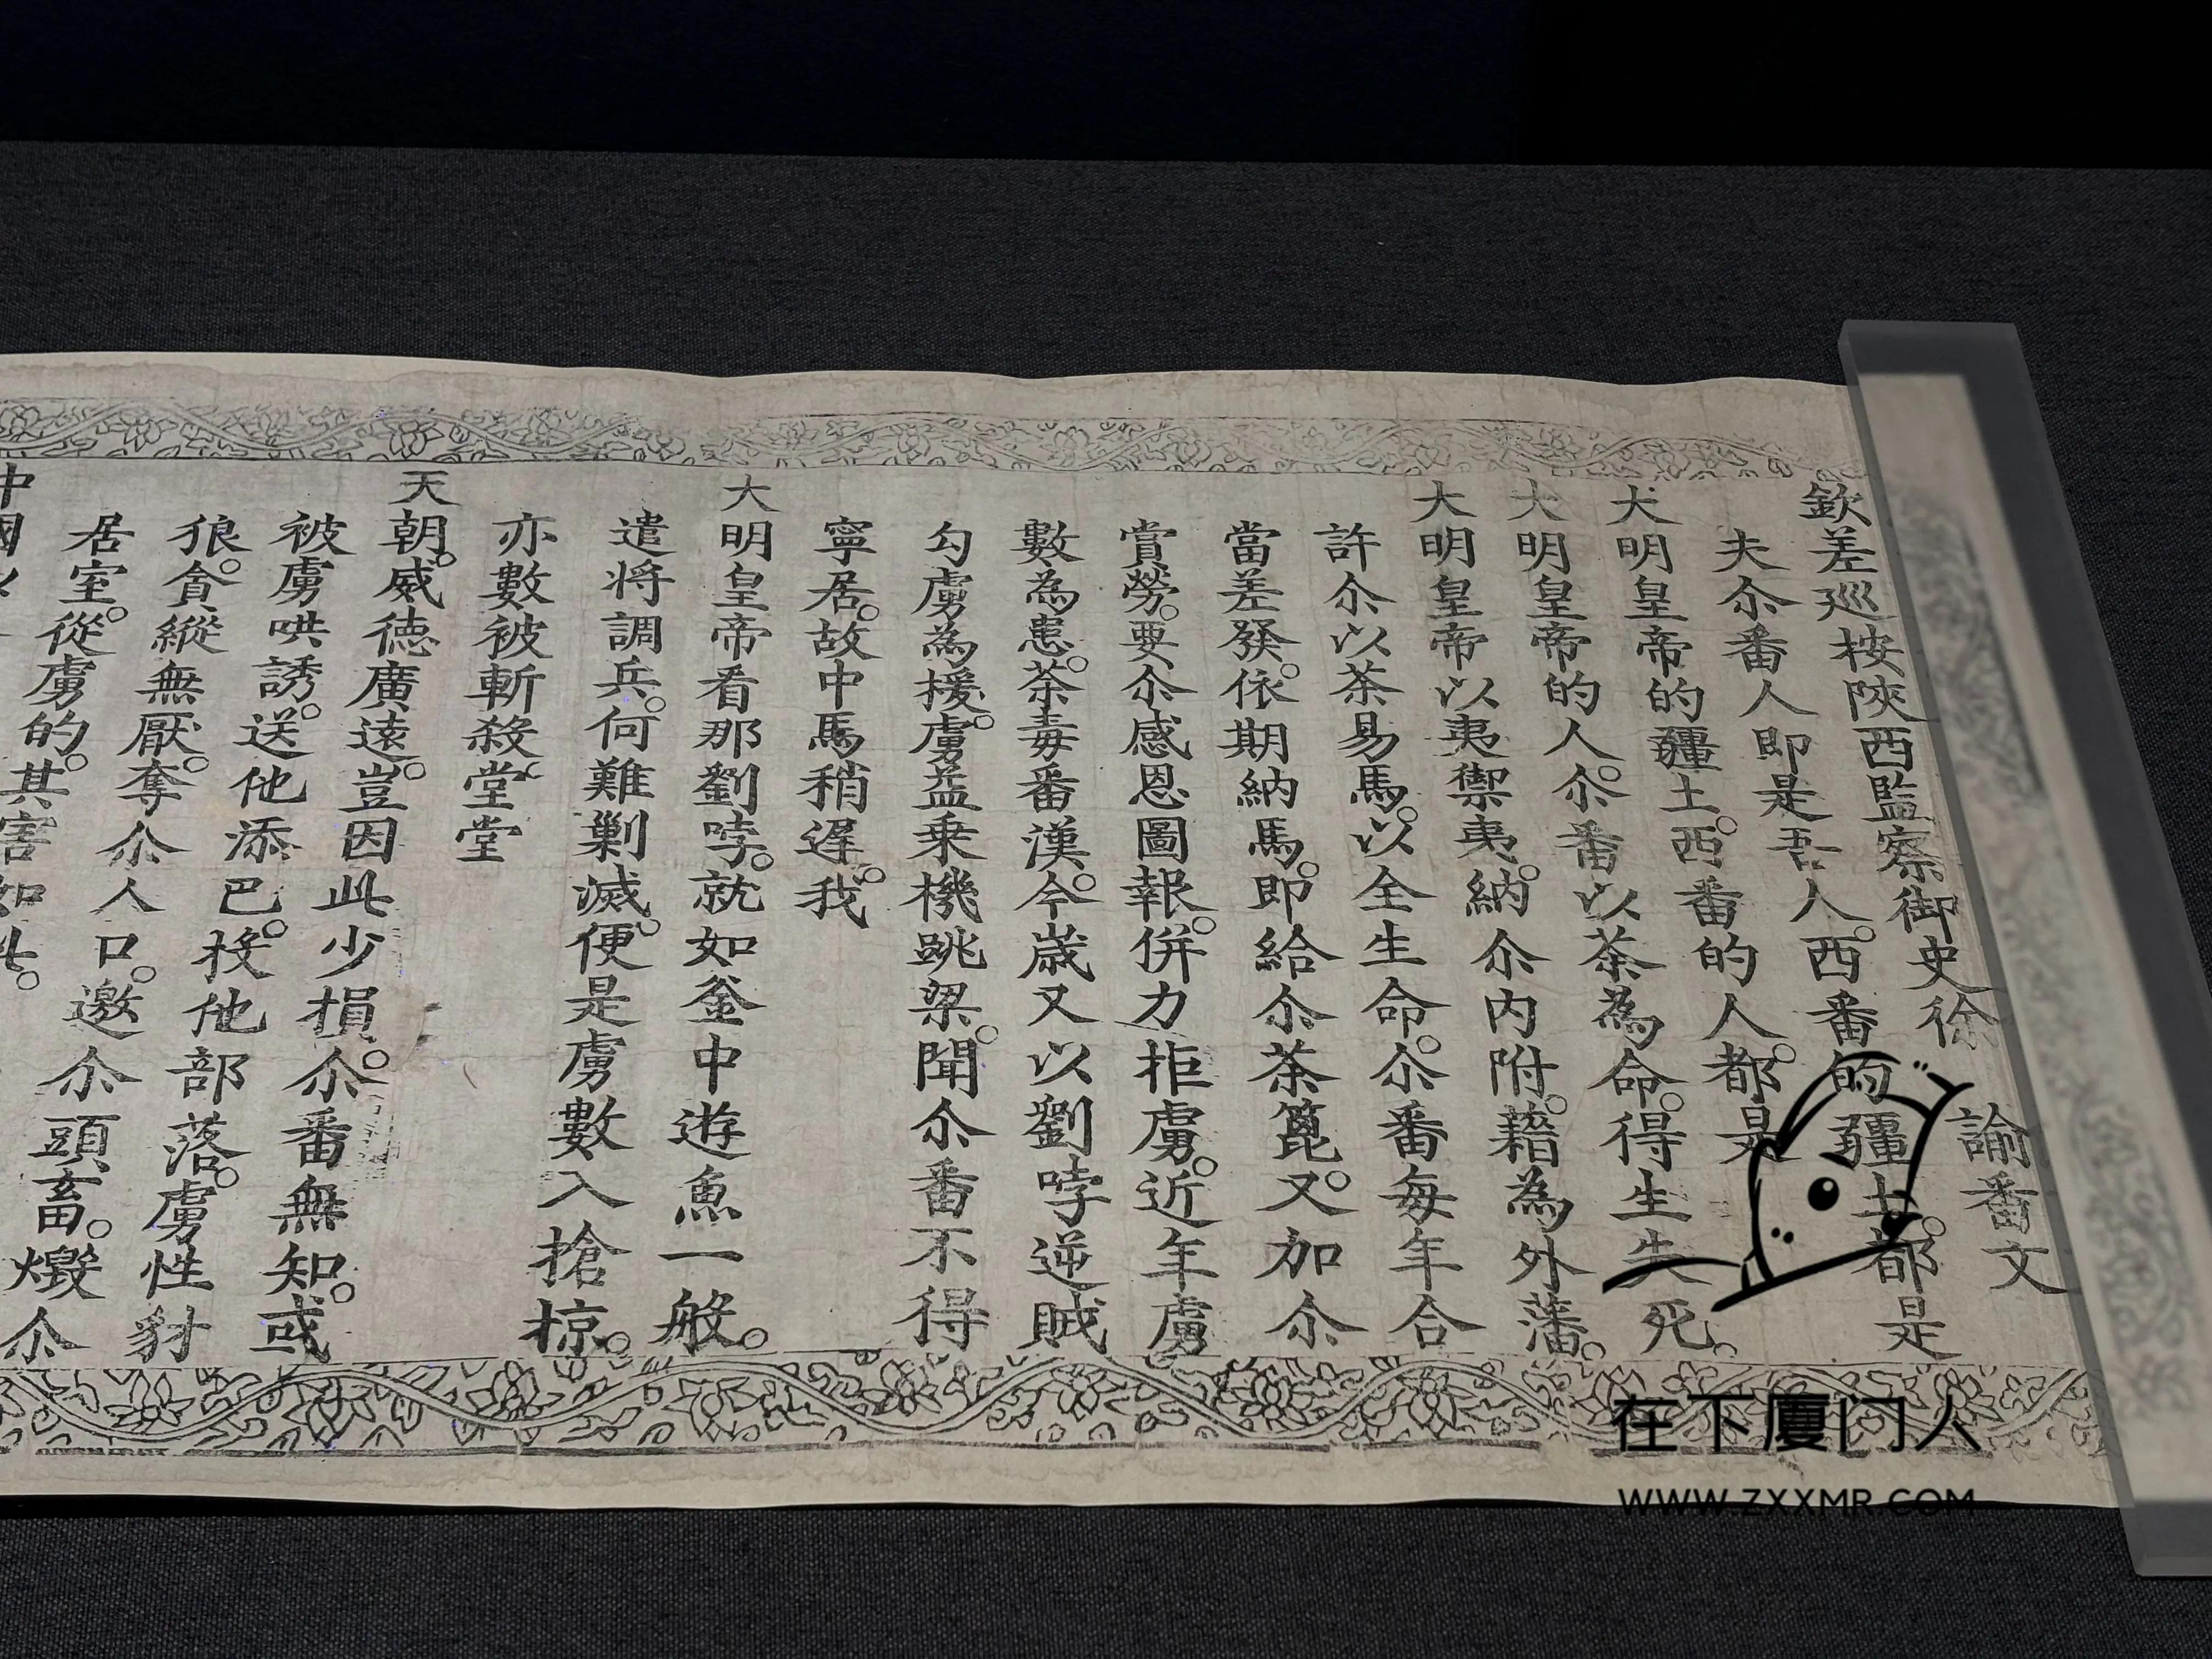 欽差巡按陝西監察御史徐 諭番文
夫尒番人即是吾人。西番的疆土。都是
大明皇帝的疆土。西番的人都。是
大明皇帝的人。尒番以茶為命。得生失死。
大明皇帝以夷禦夷。納尒內附。藉為外藩。
許尒以茶易馬。以全生命。尒番每年合
當差發。依期納馬。即給尒茶篦。又加尒
賞勞。要尒感恩圖報。併力拒虜。近年虜
數為患。荼毒番漢。今歲又以劉哱逆賊
勾虜為援。虜益乘機跳梁。聞尒番不得
寧居。故中馬稍遲。我
大明皇帝看那劉哱。就如釜中遊魚一般。
遣将調兵。何難剿滅。便是虜數入搶掠。
亦數被斬殺。堂堂
天朝。威德廣遠。豈因此少損。尒番無知。或
被虜哄誘。送他添巴。投他部落。虜性豺
狼。貪縱無厭。奪尒人口。邀尒頭畜。燬尒
居室。從虜的。其害如此。
中國
在下廈门人
WWW.ZXXMR.COM